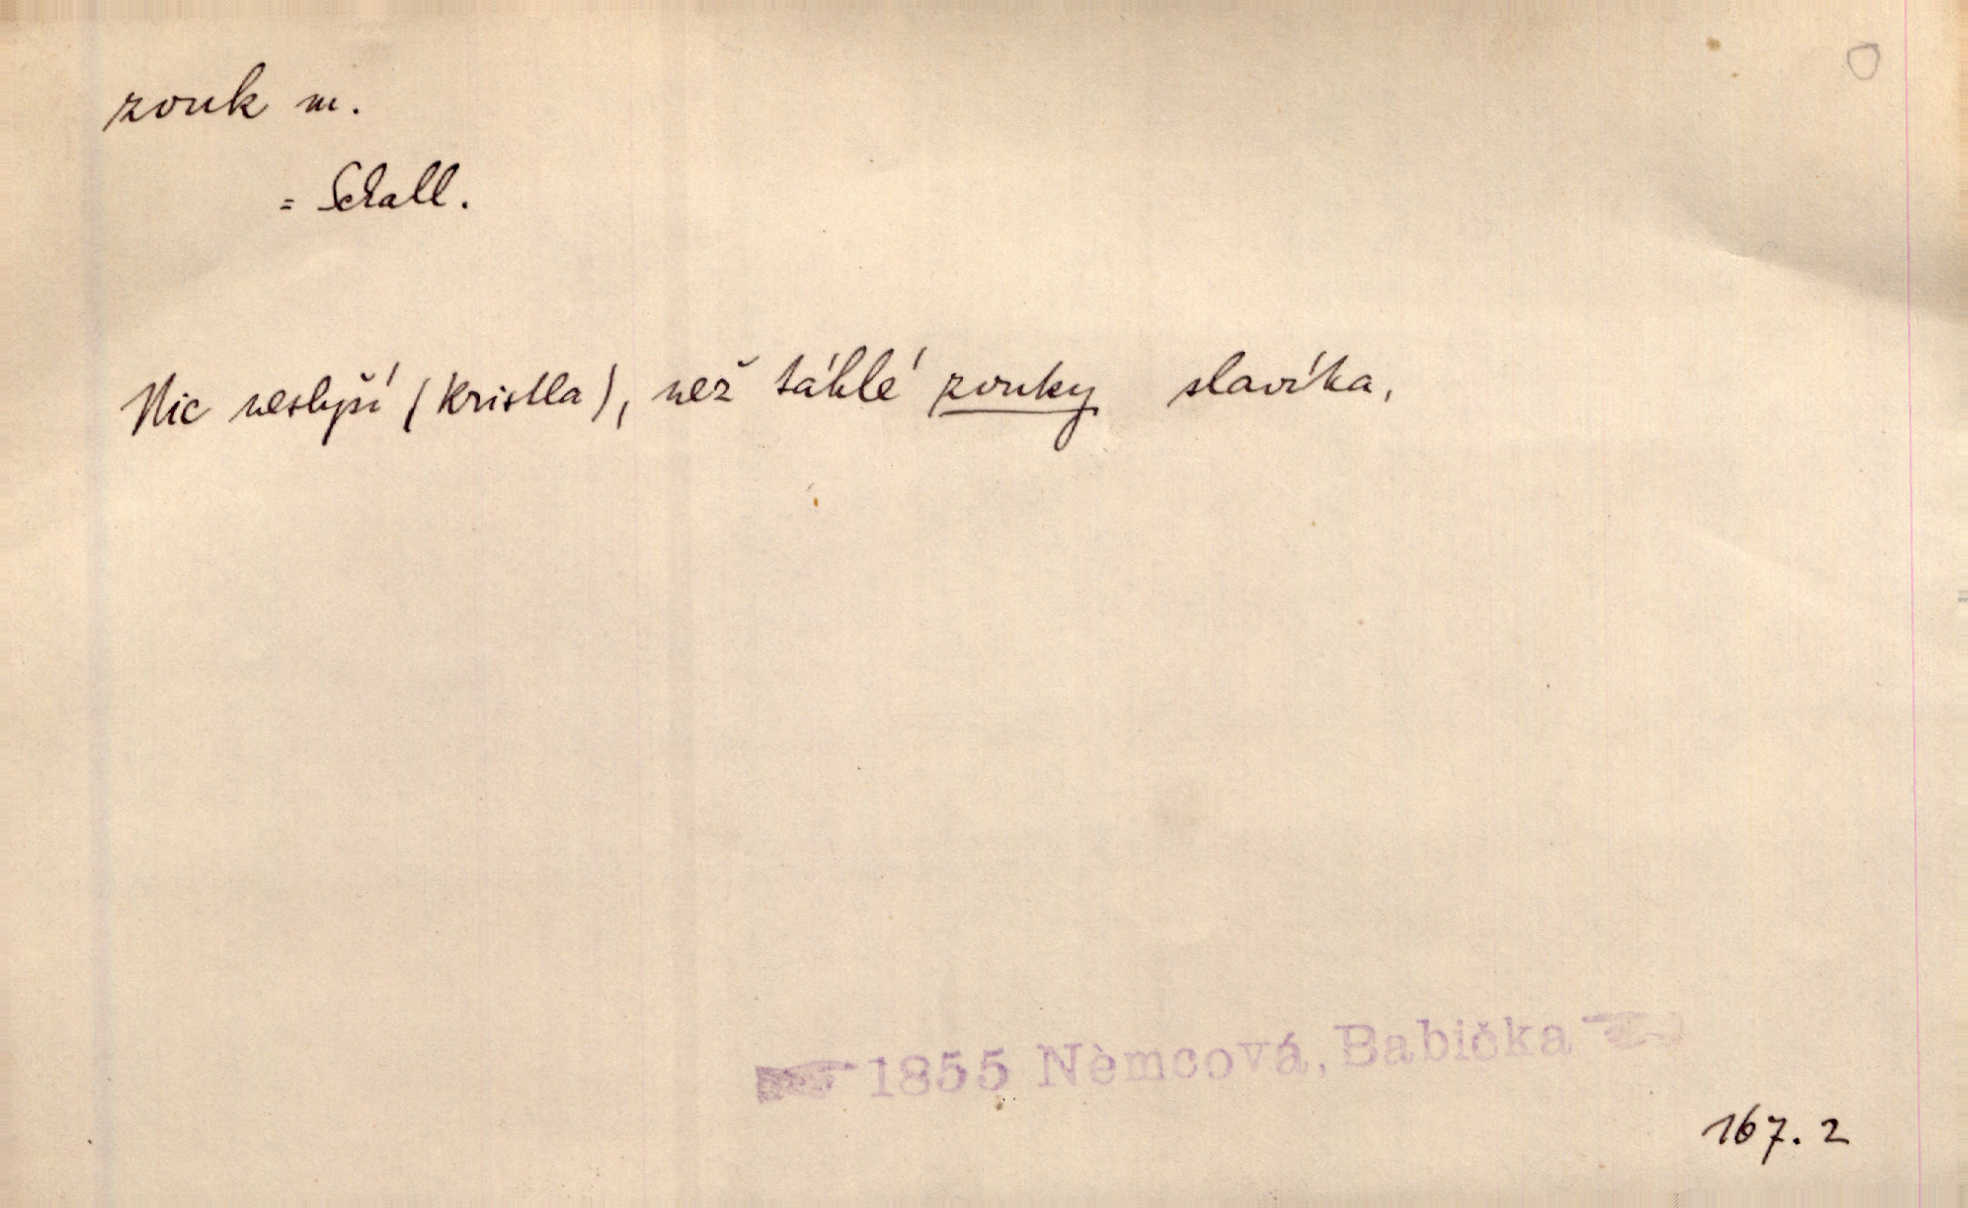 zvuk m.
= Schall.
Nic neslyší (Kristla), než táhlé zvuky slavíka,
1855 Nèmcová, Babička
167. 2